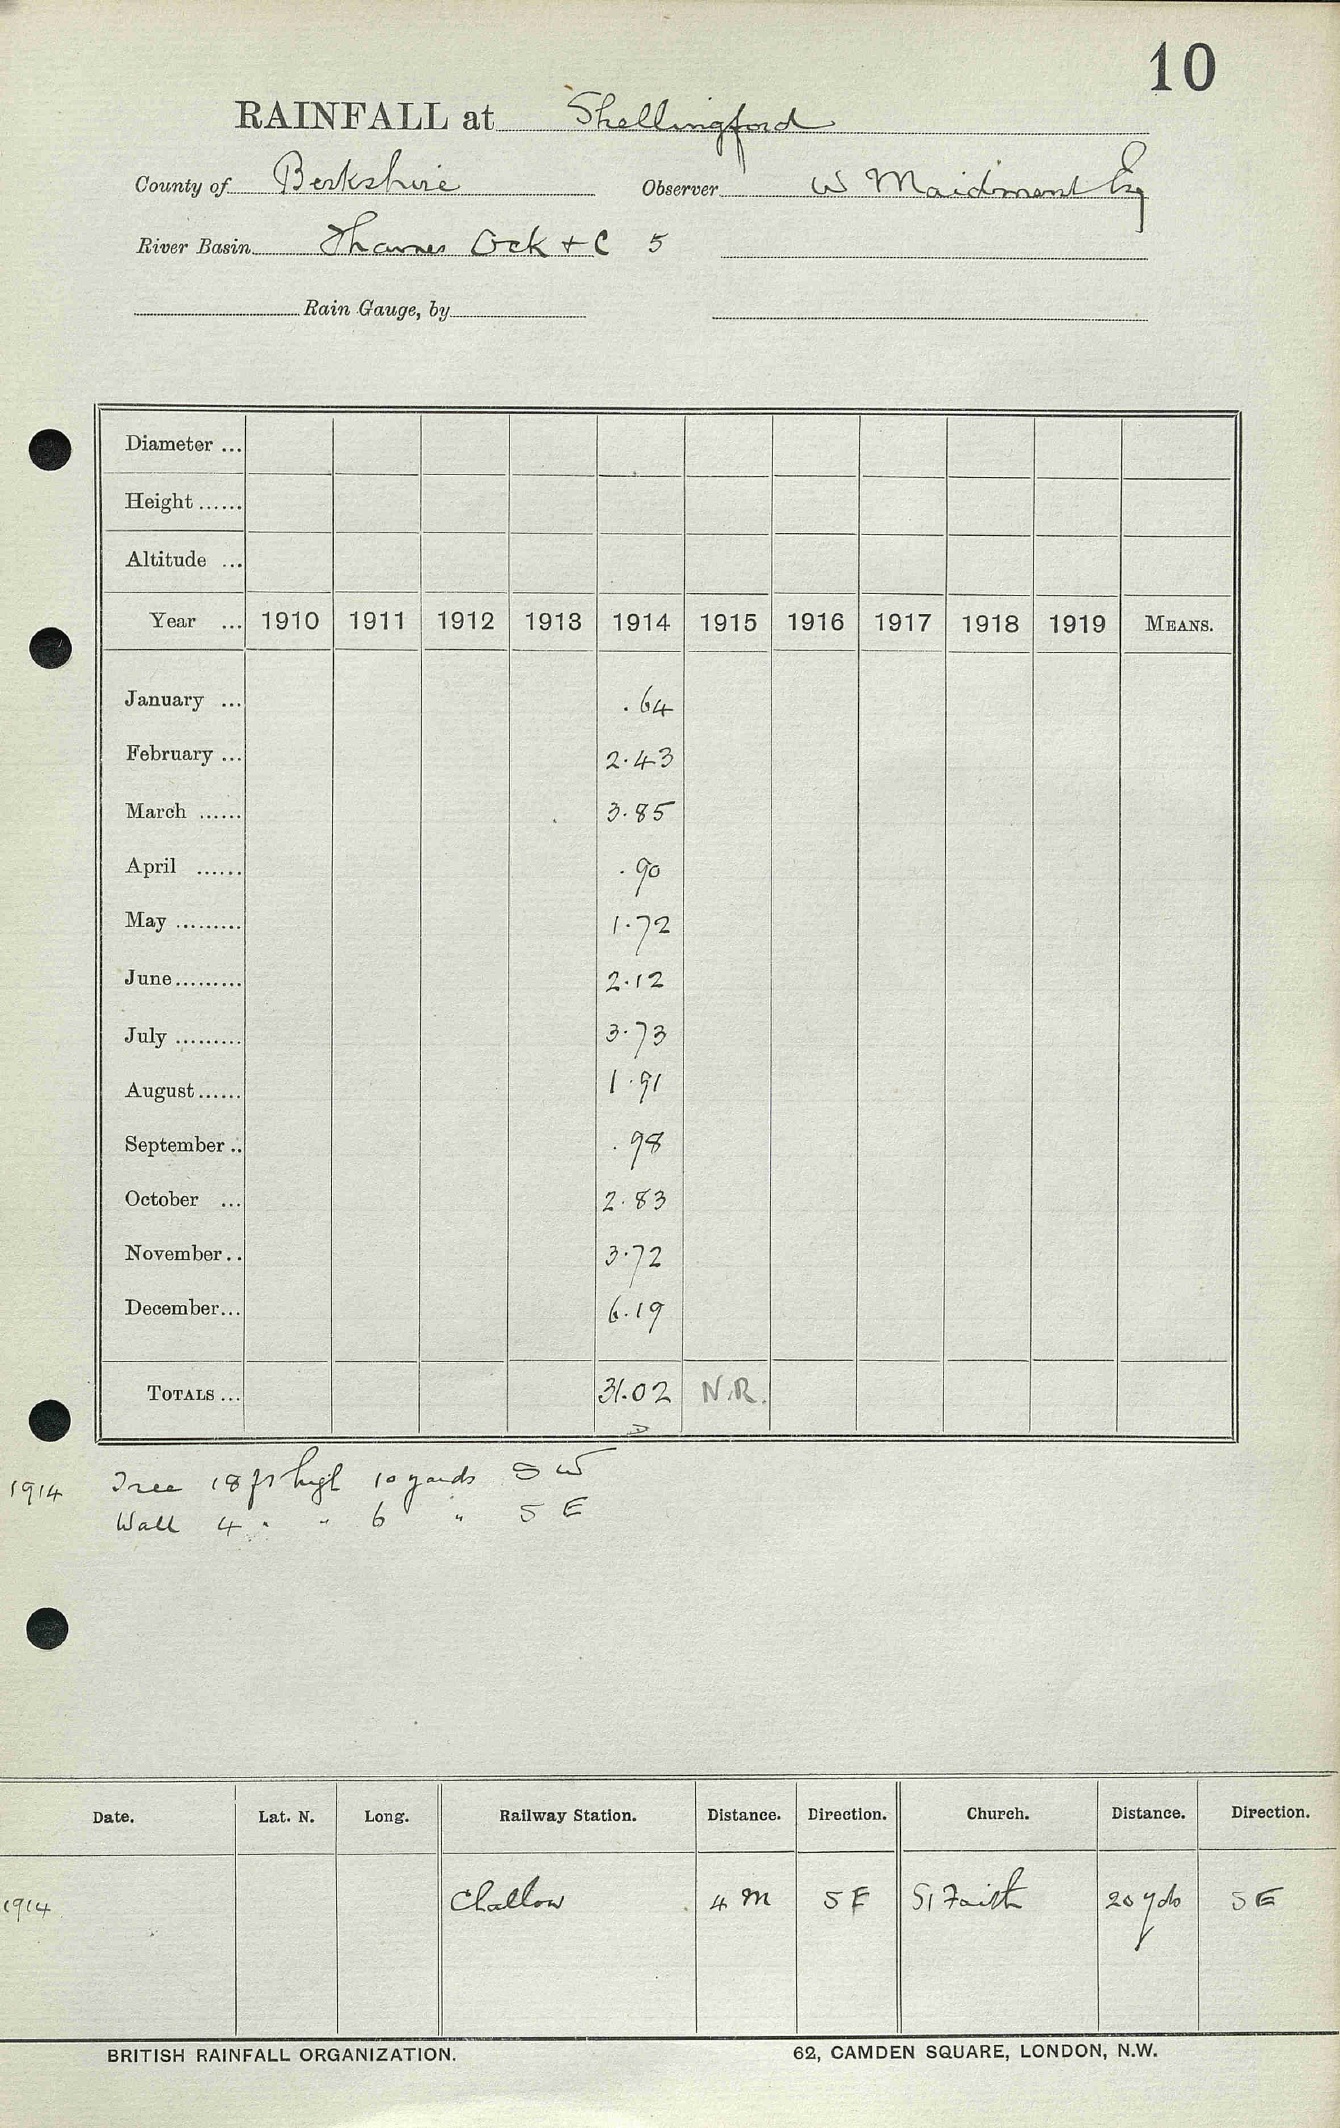 10
RAINFALL at Shellingford
County of Berkshire Observer W Maidment Esq
River Basin Thames Ock + C 5
Rain Gauge, by
Diameter ...
Height ......
Altitude ...
Year ... 1910 1911 1912 1913 1914 1915 1916 1917 1918 1919 MEANS.
January ... .64
February ... 2.43
March ...... 3.85
April ...... .90
May ......... 1.72
June ......... 2.12
July ......... 3.73
August ...... 1.91
September .. .98
October ... 2.83
November .. 3.72
December ... 6.19
TOTALS ... 31.02 N.R.
1914 Tree 18 ft high 10 yards S W
Wall 4 " " 6 " S E
Date. Lat. N. Long. Railway Station. Distance. Direction. Church. Distance. Direction.
1914 Challow 4 m S E St Faith 20 yds S E
BRITISH RAINFALL ORGANIZATION. 62, CAMDEN SQUARE, LONDON, N.W.